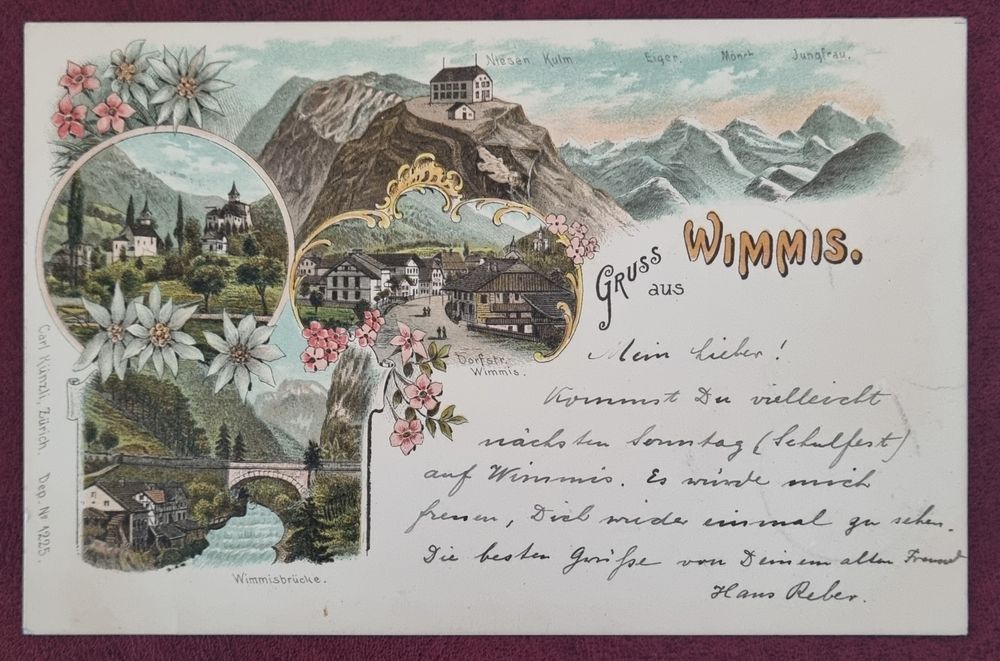 Niesen Kulm
Eiger.
Mönch
Jungfrau.
Gruss
aus
WIMMIS.
Dorfstr.
Wimmis.
Wimmisbrücke.
Carl Künzli, Zürich. Dep. No 1225.
Mein Lieber!
Kommst Du vielleicht
nächsten Sonntag (Schulfest)
auf Wimmis. Es würde mich
freuen, Dich wieder einmal zu sehen.
Die besten Grüße von Deinem alten Freund
Hans Reber.